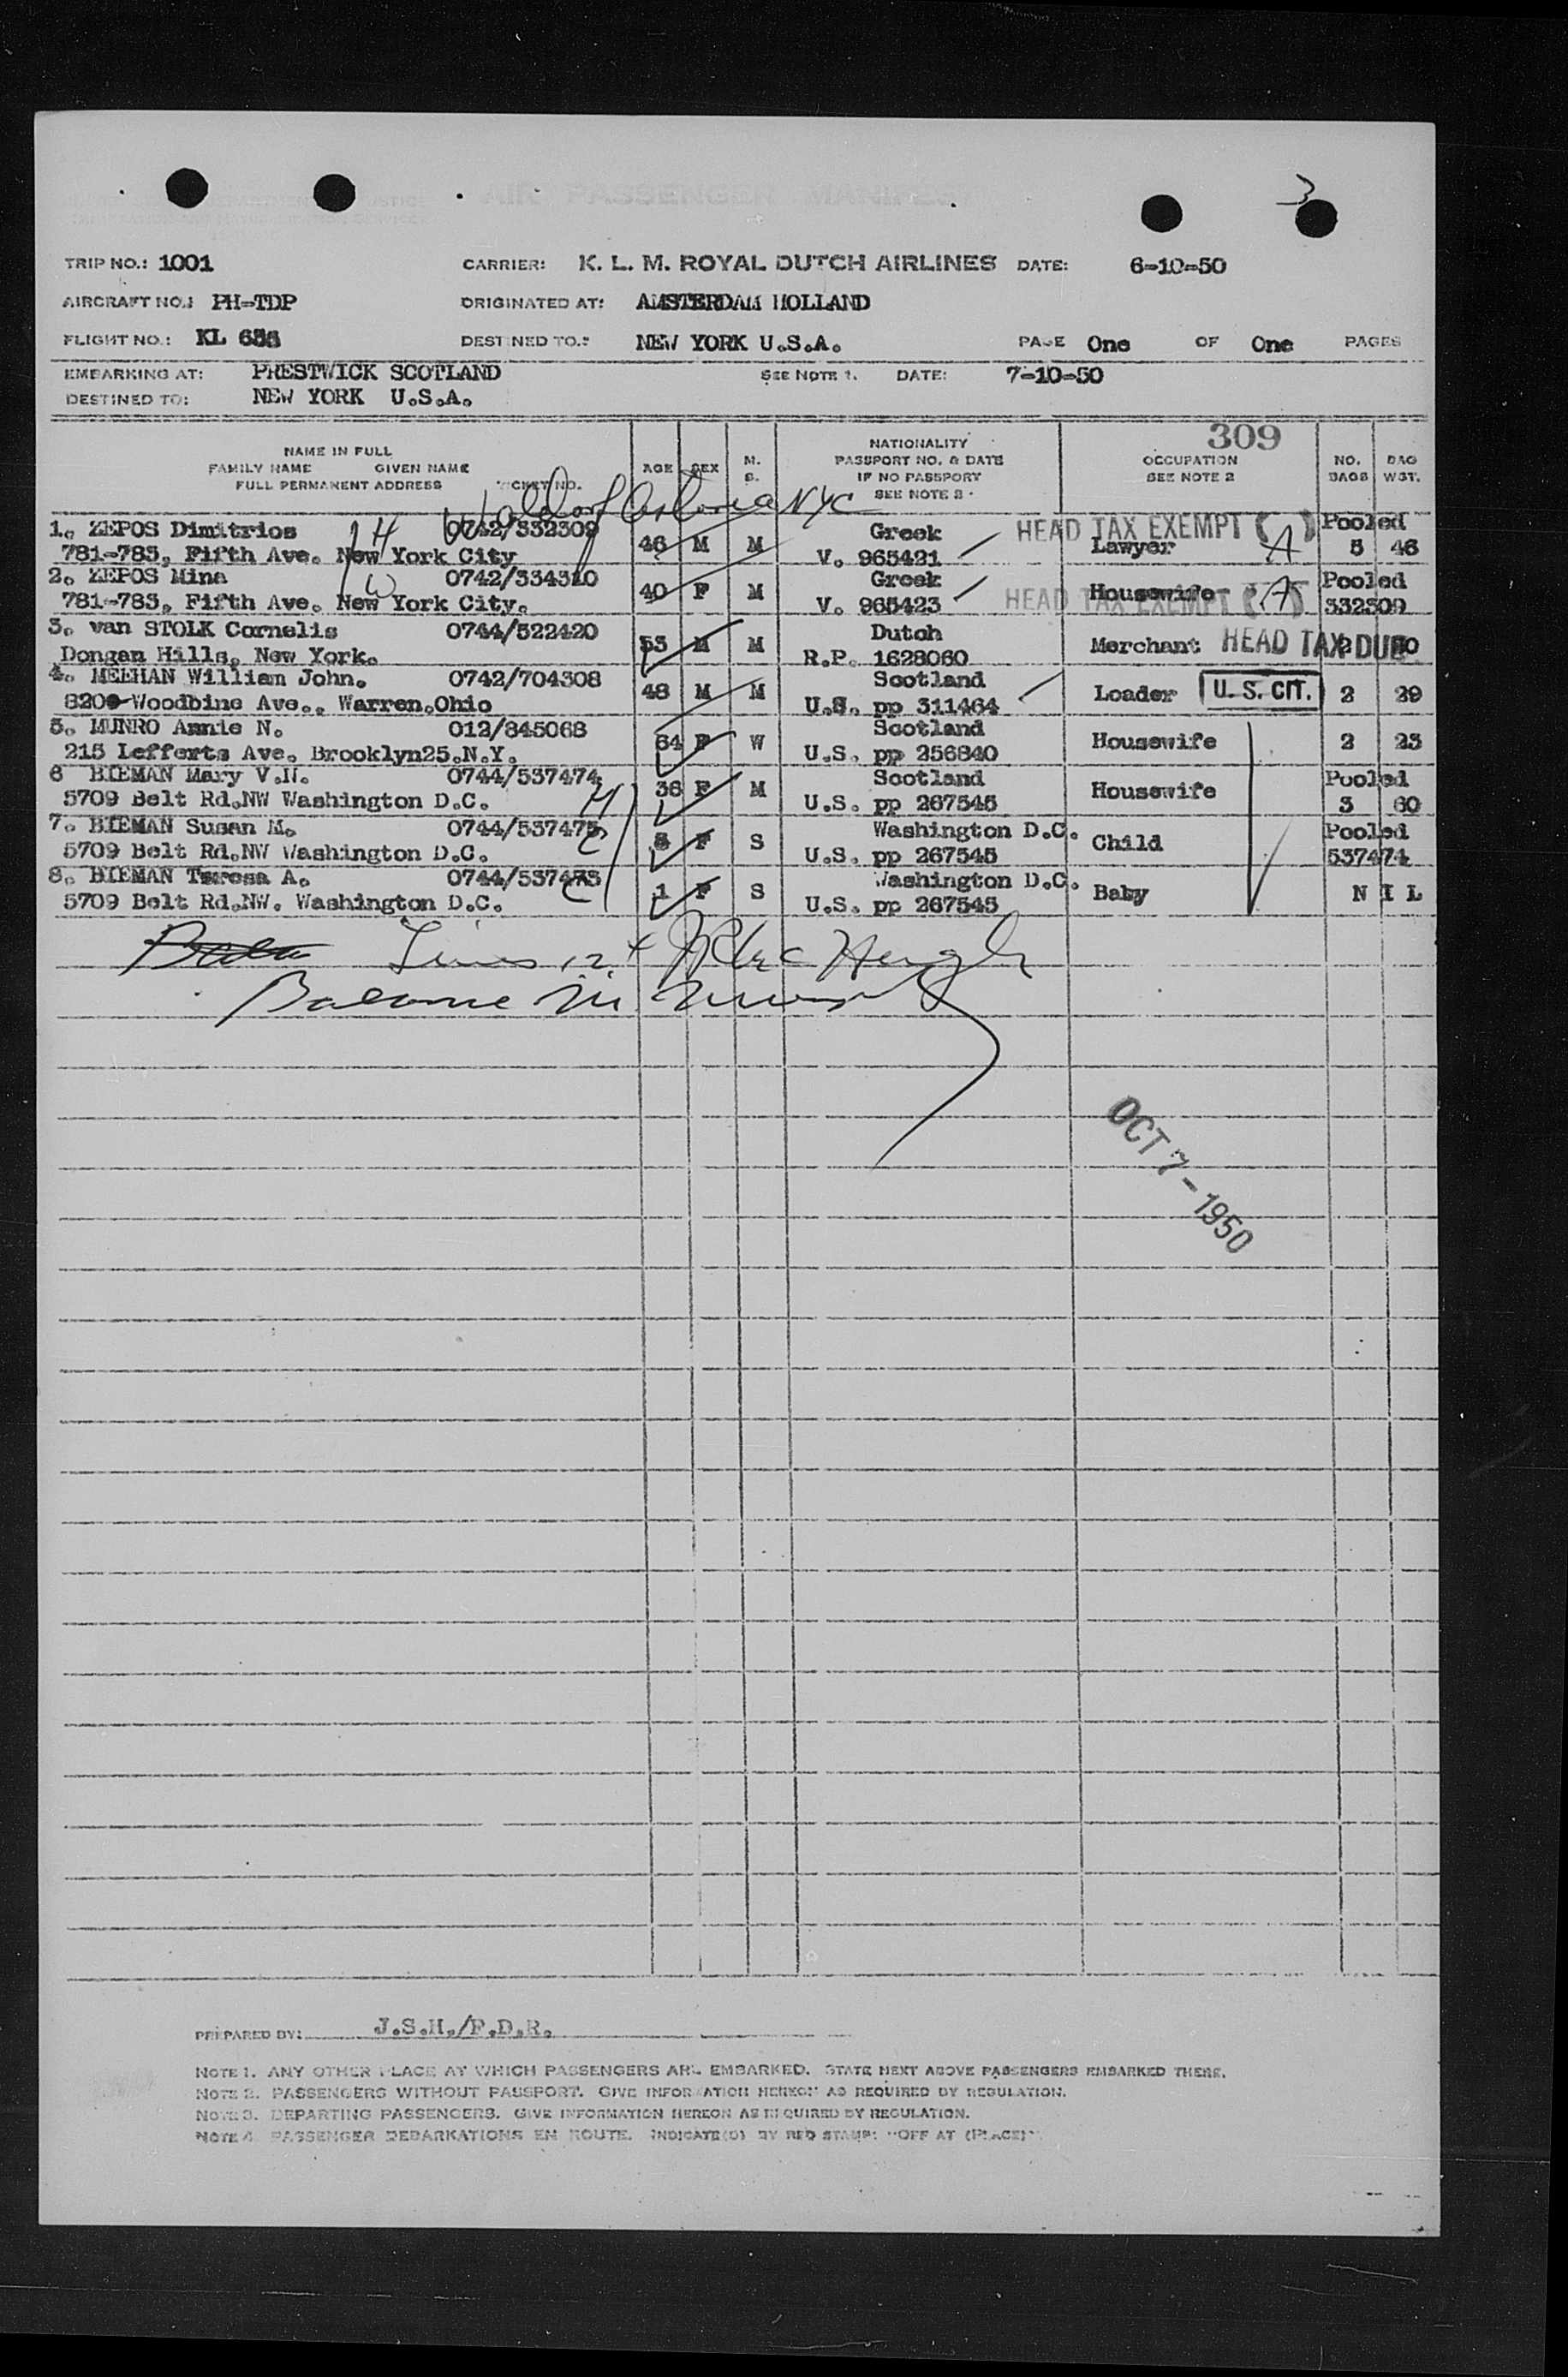 AIR PASSENGER MANIFEST
3
TRIP NO.: 1001 CARRIER: K. L. M. ROYAL DUTCH AIRLINES DATE: 6-10-50
AIRCRAFT NO.: PH-TDP ORIGINATED AT: AMSTERDAM HOLLAND
FLIGHT NO.: KL 636 DESTINED TO.: NEW YORK U.S.A. PAGE One OF One PAGES
EMBARKING AT: PRESTWICK SCOTLAND SEE NOTE 1. DATE: 7-10-50
DESTINED TO: NEW YORK U.S.A.
309
NAME IN FULL
FAMILY NAME GIVEN NAME
FULL PERMANENT ADDRESS TICKET NO.
AGE SEX M. S.
NATIONALITY
PASSPORT NO. & DATE
IF NO PASSPORT
SEE NOTE 2
OCCUPATION
SEE NOTE 2
NO. BAGS
BAG WGT.
Waldorf Astoria NYC
1. ZEPOS Dimitrios 0742/332309 46 M M Greek HEAD TAX EXEMPT ( ) Lawyer A Pooled
781-783, Fifth Ave. New York City H V. 965421 5 46
2. ZEPOS Mina 0742/334310 40 F M Greek Housewife A Pooled
781-783, Fifth Ave. New York City. W V. 965423 HEAD TAX EXEMPT 332309
3. van STOLK Cornelis 0744/522420 53 M M Dutch Merchant HEAD TAX DUE 2
Dongan Hills, New York. R.P. 1628060
4. MEEHAN William John. 0742/704308 48 M M Scotland Loader U. S. CIT. 2 29
Woodbine Ave., Warren,Ohio U.S. pp 311464
5. MUNRO Annie N. 012/845068 64 F W Scotland Housewife 2 23
215 Lefferts Ave. Brooklyn25.N.Y. U.S. pp 256840
6 BIEMAN Mary V.N. 0744/537474 36 F M Scotland Housewife Pooled
5709 Belt Rd.NW Washington D.C. U.S. pp 267545 3 60
7. BIEMAN Susan M. 0744/537475 F S Washington D.C. Child Pooled
5709 Belt Rd.NW Washington D.C. U.S. pp 267545 537474
8. BIEMAN Teresa A. 0744/537473 1 F S Washington D.C. Baby N I L
5709 Belt Rd.NW. Washington D.C. U.S. pp 267545
Lines 1 2 +
Balance
OCT 7 - 1950
PREPARED BY: J.S.H./F.D.R.
NOTE 1. ANY OTHER PLACE AT WHICH PASSENGERS ARE EMBARKED. STATE NEXT ABOVE PASSENGERS EMBARKED THERE.
NOTE 2. PASSENGERS WITHOUT PASSPORT. GIVE INFORMATION HEREON AS REQUIRED BY REGULATION.
NOTE 3. DEPARTING PASSENGERS. GIVE INFORMATION HEREON AS REQUIRED BY REGULATION.
NOTE 4. PASSENGER DEBARKATIONS EN ROUTE. INDICATE(D) BY RED STAMP: "OFF AT (PLACE)"